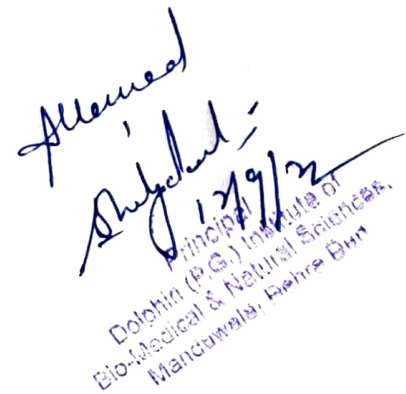 Allowed
12/9/22
Principal
Dolphin (P.G.) Institute of
Bio-Medical & Natural Sciences,
Manduwala, Dehra Dun